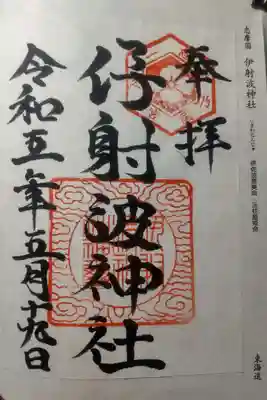 志摩国 伊射波神社
東海道
奉拝
伊射波神社
令和五年五月十九日